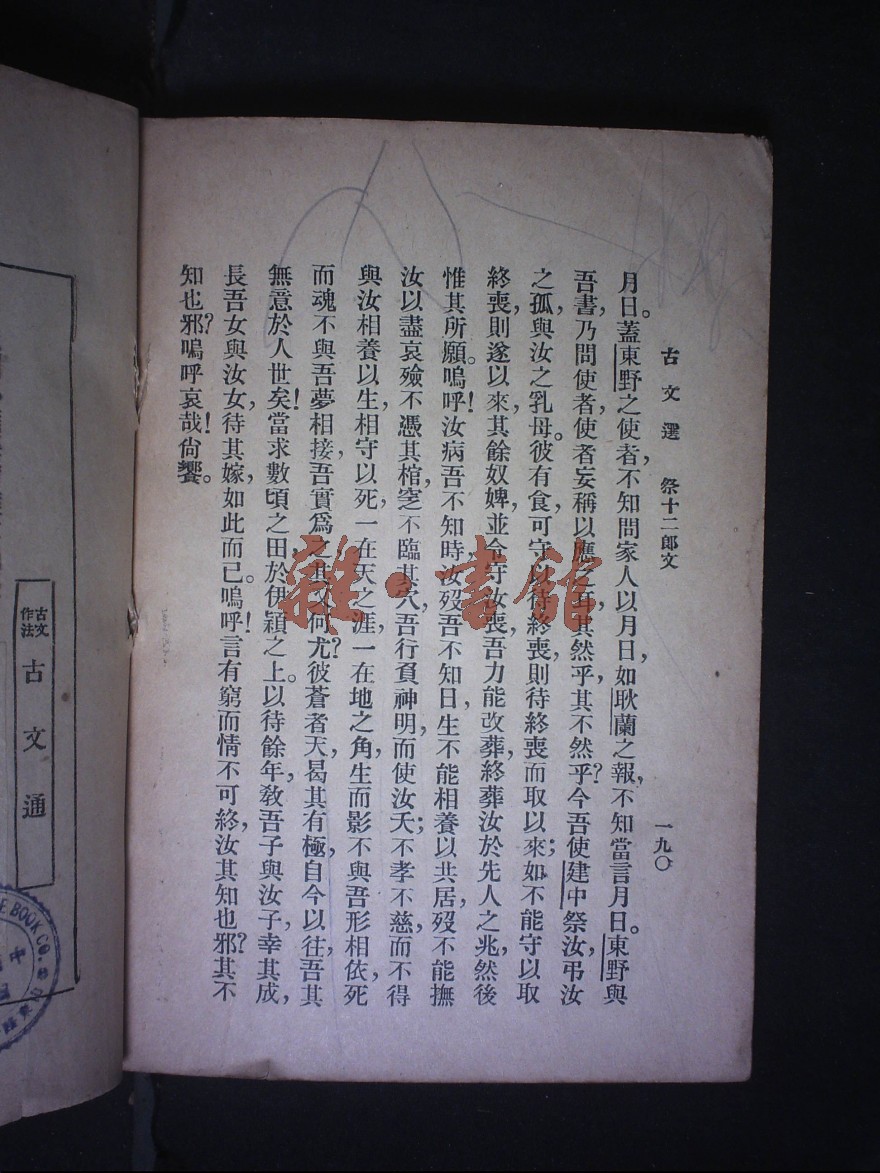 古文選 祭十二郎文 一九〇
月日。蓋東野之使者，不知問家人以月日，如耿蘭之報，不知當言月日。東野與
吾書，乃問使者，使者妄稱以應之耳，其然乎，其不然乎？今吾使建中祭汝，弔汝
之孤，與汝之乳母。彼有食，可守以待終喪，則待終喪而取以來；如不能守以取
終喪，則遂以來，其餘奴婢，並令守汝喪，吾力能改葬，終葬汝於先人之兆，然後
惟其所願。嗚呼！汝病吾不知時，汝歿吾不知日，生不能相養以共居，歿不能撫
汝以盡哀，殮不憑其棺，窆不臨其穴，吾行負神明，而使汝夭；不孝不慈，而不得
與汝相養以生，相守以死，一在天之涯，一在地之角，生而影不與吾形相依，死
而魂不與吾夢相接，吾實爲之，其又何尤？彼蒼者天，曷其有極，自今以往，吾其
無意於人世矣！當求數頃之田，於伊潁之上。以待餘年，敎吾子與汝子，幸其成，
長吾女與汝女，待其嫁，如此而已。嗚呼！言有窮而情不可終，汝其知也邪？其不
知也邪？嗚呼哀哉！尙饗。
古文作法
古文通
E BOOK CO.
中
雜·書館